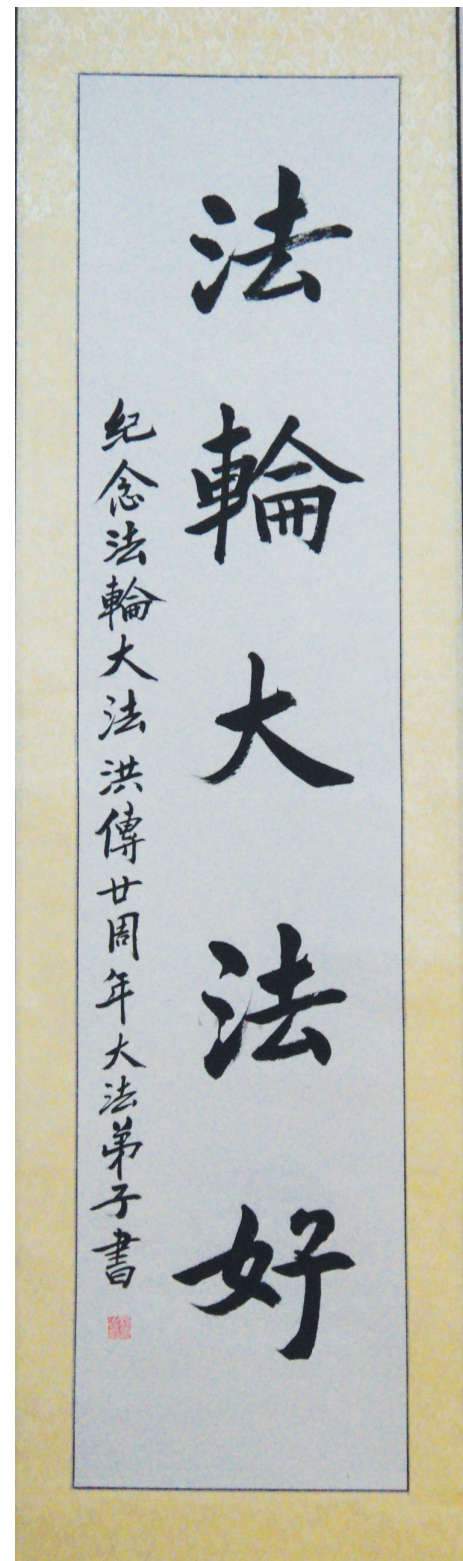 法輪大法好
紀念法輪大法洪傳廿周年大法弟子書